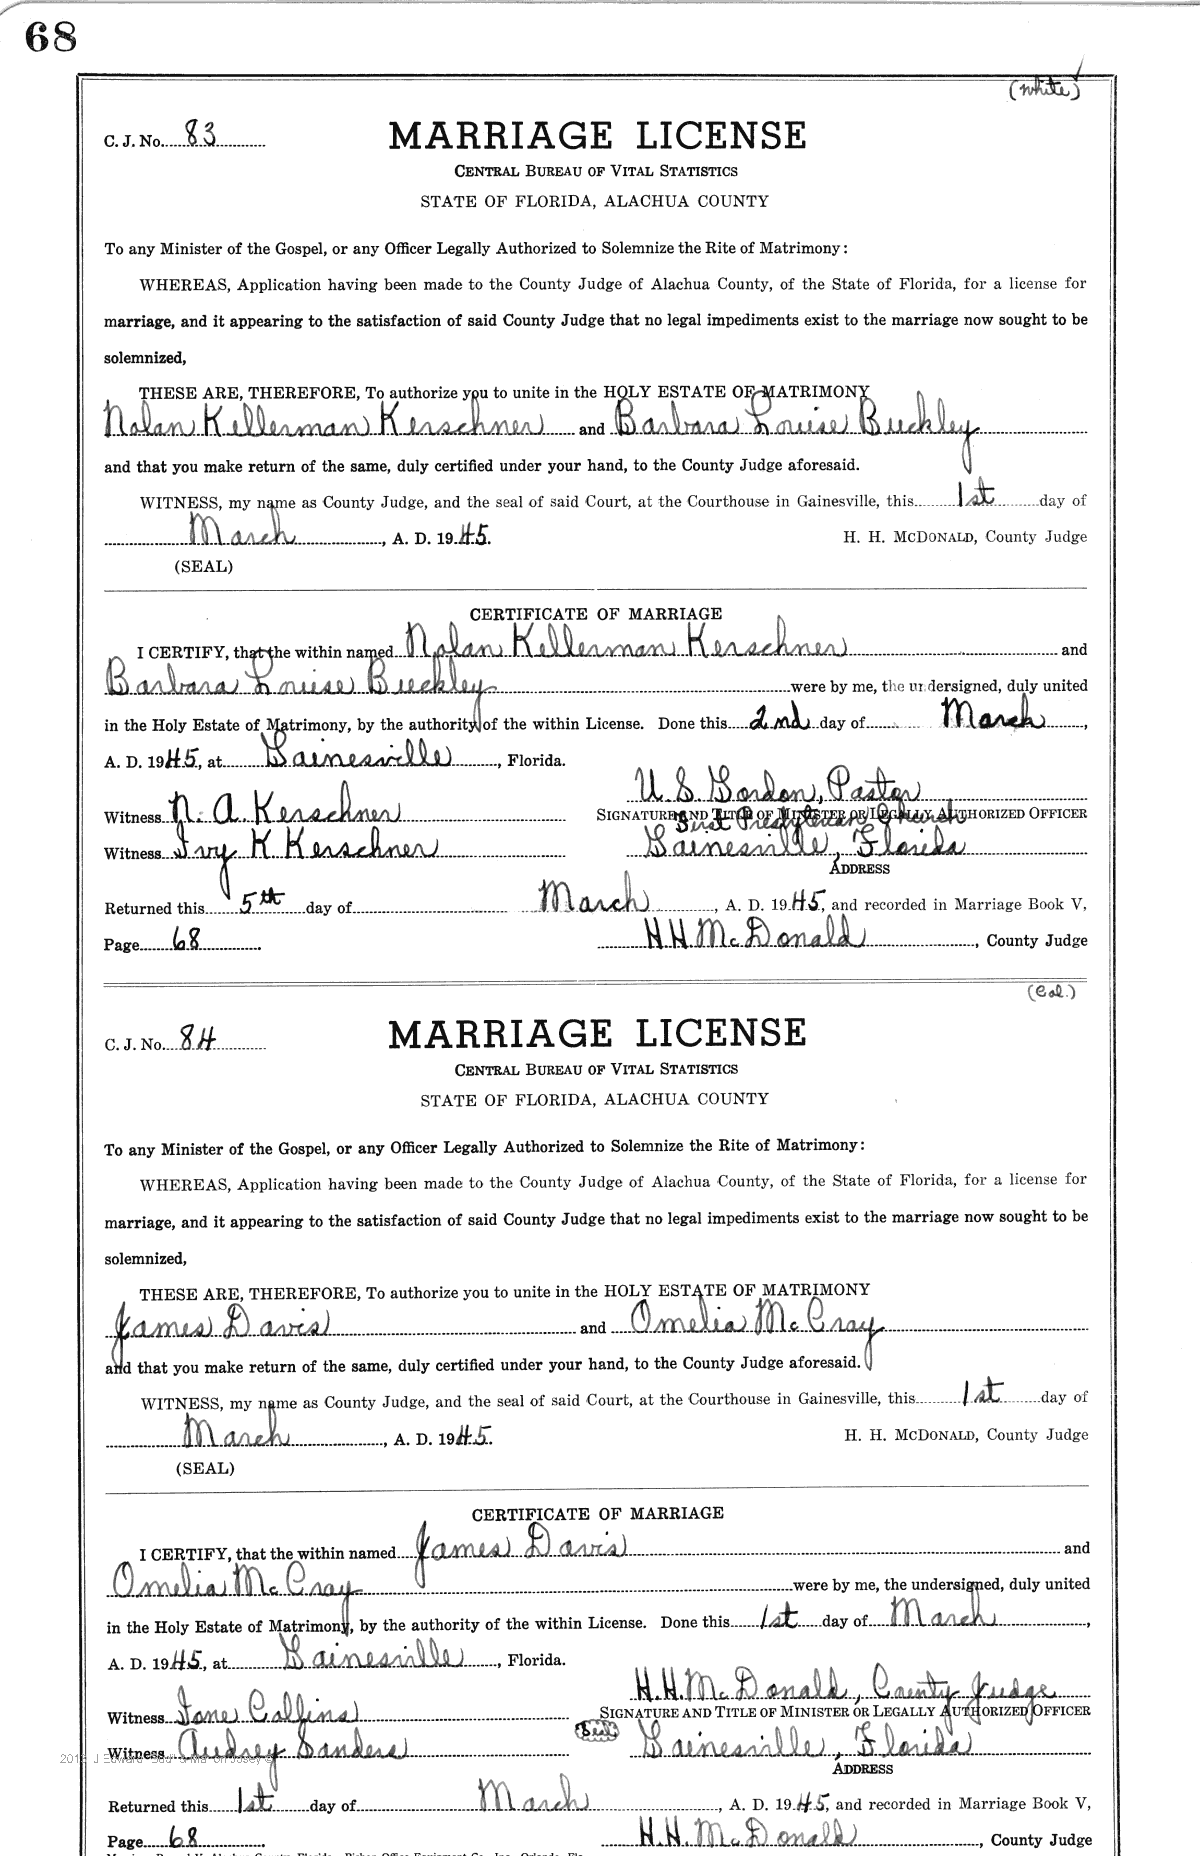 68
(White)
C. J. No. 83
MARRIAGE LICENSE
CENTRAL BUREAU OF VITAL STATISTICS
STATE OF FLORIDA, ALACHUA COUNTY
To any Minister of the Gospel, or any Officer Legally Authorized to Solemnize the Rite of Matrimony:
WHEREAS, Application having been made to the County Judge of Alachua County, of the State of Florida, for a license for
marriage, and it appearing to the satisfaction of said County Judge that no legal impediments exist to the marriage now sought to be
solemnized,
THESE ARE, THEREFORE, To authorize you to unite in the HOLY ESTATE OF MATRIMONY
Nolan Kellerman Kerschner and Barbara Louise Bieckley
and that you make return of the same, duly certified under your hand, to the County Judge aforesaid.
WITNESS, my name as County Judge, and the seal of said Court, at the Courthouse in Gainesville, this 1st day of
March, A. D. 1945. H. H. MCDONALD, County Judge
(SEAL)
CERTIFICATE OF MARRIAGE
I CERTIFY, that the within named Nolan Kellerman Kerschner and
Barbara Louise Bieckley were by me, the undersigned, duly united
in the Holy Estate of Matrimony, by the authority of the within License. Done this 2nd day of March,
A. D. 1945, at Gainesville, Florida.
U. S. Gordon, Pastor
Witness N. A. Kerschner SIGNATURE AND TITLE OF MINISTER OR LEGALLY AUTHORIZED OFFICER
First Presbyterian Church
Witness Ivy K Kerschner Gainesville, Florida
ADDRESS
Returned this 5th day of March, A. D. 1945, and recorded in Marriage Book V,
Page 68 H H McDonald, County Judge
(Col.)
C. J. No. 84
MARRIAGE LICENSE
CENTRAL BUREAU OF VITAL STATISTICS
STATE OF FLORIDA, ALACHUA COUNTY
To any Minister of the Gospel, or any Officer Legally Authorized to Solemnize the Rite of Matrimony:
WHEREAS, Application having been made to the County Judge of Alachua County, of the State of Florida, for a license for
marriage, and it appearing to the satisfaction of said County Judge that no legal impediments exist to the marriage now sought to be
solemnized,
THESE ARE, THEREFORE, To authorize you to unite in the HOLY ESTATE OF MATRIMONY
James Davis and Omelia McCray
and that you make return of the same, duly certified under your hand, to the County Judge aforesaid.
WITNESS, my name as County Judge, and the seal of said Court, at the Courthouse in Gainesville, this 1st day of
March, A. D. 1945. H. H. MCDONALD, County Judge
(SEAL)
CERTIFICATE OF MARRIAGE
I CERTIFY, that the within named James Davis and
Omelia McCray were by me, the undersigned, duly united
in the Holy Estate of Matrimony, by the authority of the within License. Done this 1st day of March,
A. D. 1945, at Gainesville, Florida.
H. H. McDonald, County Judge
Witness Ione Collins SIGNATURE AND TITLE OF MINISTER OR LEGALLY AUTHORIZED OFFICER
(Seal)
Witness Audrey Sanders Gainesville, Florida
ADDRESS
Returned this 1st day of March, A. D. 1945, and recorded in Marriage Book V,
Page 68 H. H. McDonald, County Judge